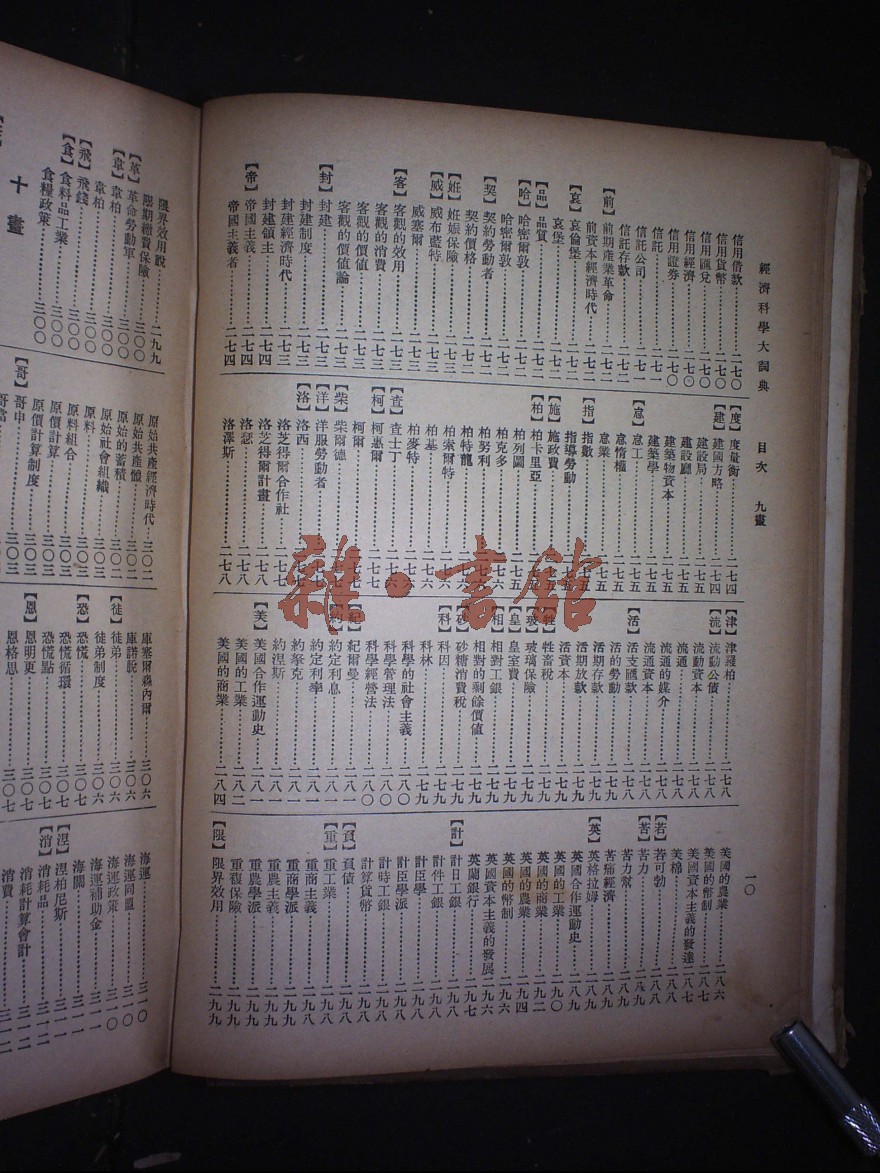 經濟科學大詞典 目次 九畫
一〇
信用借款……二七〇
信用貨幣……二七〇
信用匯兌……二七〇
信用經濟……二七〇
信用證券……二七〇
信託……二七一
信託公司……二七一
信託存款……二七一
【前】前期產業革命……二七二
前資本經濟時代……二七二
【哀】哀倫堡……二七二
哀堡……二七二
【品】品質……二七二
【哈】哈密爾敦……二七二
哈密爾敦……二七二
【契】契約勞動者……二七二
契約價格……二七二
【姙】姙娠保險……二七三
【威】威布藍特……二七三
威塞爾……二七三
【客】客觀的效用……二七三
客觀的消費……二七三
客觀的價值……二七三
客觀的價值論……二七三
【封】封建……二七三
封建制度……二七三
封建經濟時代……二七三
封建領主……二七四
【帝】帝國主義……二七四
帝國主義者……二七四
【度】度量衡……二七四
【建】建國方略……二七四
建設局……二七五
建設廳……二七五
建築物資本……二七五
建築學……二七五
【怠】怠工……二七五
怠惰權……二七五
怠業……二七五
【指】指數……二七五
指導勞動……二七五
【施】施政費……二七五
【柏】柏卡里亞……二七五
柏列圖……二七五
柏克多……二七六
柏努利……二七六
柏特龍……二七六
柏索爾特……二七六
柏基……二七六
柏麥特……二七六
【查】查士丁……二七六
【柯】柯惠爾……二七七
柯爾……二七七
【柴】柴爾德……二七七
【洋】洋服勞動者……二七七
【洛】洛西……二七七
洛芝得爾合作社……二七七
洛芝得爾計畫……二七八
洛瑟……二七八
洛澤斯……二七八
【津】津護柏……二七八
【流】流動公債……二七八
流動資本……二七八
流通……二七八
流通的媒介……二七八
流通資本……二七八
【活】活支匯款……二七八
活的勞動……二七八
活期存款……二七九
活期放款……二七九
活資本……二七九
【牲】牲畜稅……二七九
【玻】玻璃保險……二七九
【皇】皇室費……二七九
【相】相對工銀……二七九
相對的剩餘價值……二七九
【砂】砂糖消費稅……二七九
【科】科因……二七九
科林……二七九
科學的社會主義……二八〇
科學管理法……二八〇
科學經營法……二八〇
【紀】紀爾曼……二八一
【約】約定利息……二八一
約定利率……二八一
約拏克……二八一
約涅斯……二八一
【美】美國合作運動史……二八一
美國的工業……二八二
美國的商業……二八四
美國的農業……二八六
美國的幣制……二八七
美國資本主義的發達……二八七
美棉……二八八
【若】若可勃……二八八
【苦】苦力……二八九
苦力幫……二八九
苦痛經濟……二八九
【英】英格拉姆……二八九
英國合作運動史……二八九
英國的工業……二九〇
英國的商業……二九二
英國的農業……二九四
英國的幣制……二九六
英國資本主義的發展……二九六
英蘭銀行……二九七
【計】計日工銀……二九八
計件工銀……二九八
計臣學……二九八
計臣學派……二九八
計時工銀……二九八
計算貨幣……二九八
【負】負債……二九八
【重】重工業……二九八
重商主義……二九八
重商學派……二九九
重農主義……二九九
重農學派……二九九
重複保險……二九九
【限】限界效用……二九九
限界效用說……二九九
限期繳費保險……三〇〇
【革】革命勞動軍……三〇〇
【韋】韋柏……三〇〇
韋柏……三〇〇
【飛】飛錢……三〇〇
【食】食料品工業……三〇〇
食糧政策……三〇〇
十畫
原始共產經濟時代……三〇二
原始共產體……三〇二
原始的蓄積……三〇二
原始社會組織……三〇三
原料……三〇三
原料組合……三〇三
原價計算……三〇三
原價計算制度……三〇三
【哥】哥申……三〇三
庫塞爾森內爾……三〇六
庫諾說……三〇六
【徒】徒弟……三〇六
徒弟制度……三〇六
【恐】恐慌……三〇七
恐慌循環……三〇七
恐慌點……三〇七
【恩】恩明更……三〇七
恩格思……三〇七
海運……三一〇
海運同盟……三一〇
海運政策……三一〇
海運補助金……三一一
海關……三一一
【涅】涅柏尼斯……三一一
【消】消耗品……三一一
消耗計算會計……三一一
消費……三一二
雜·書館